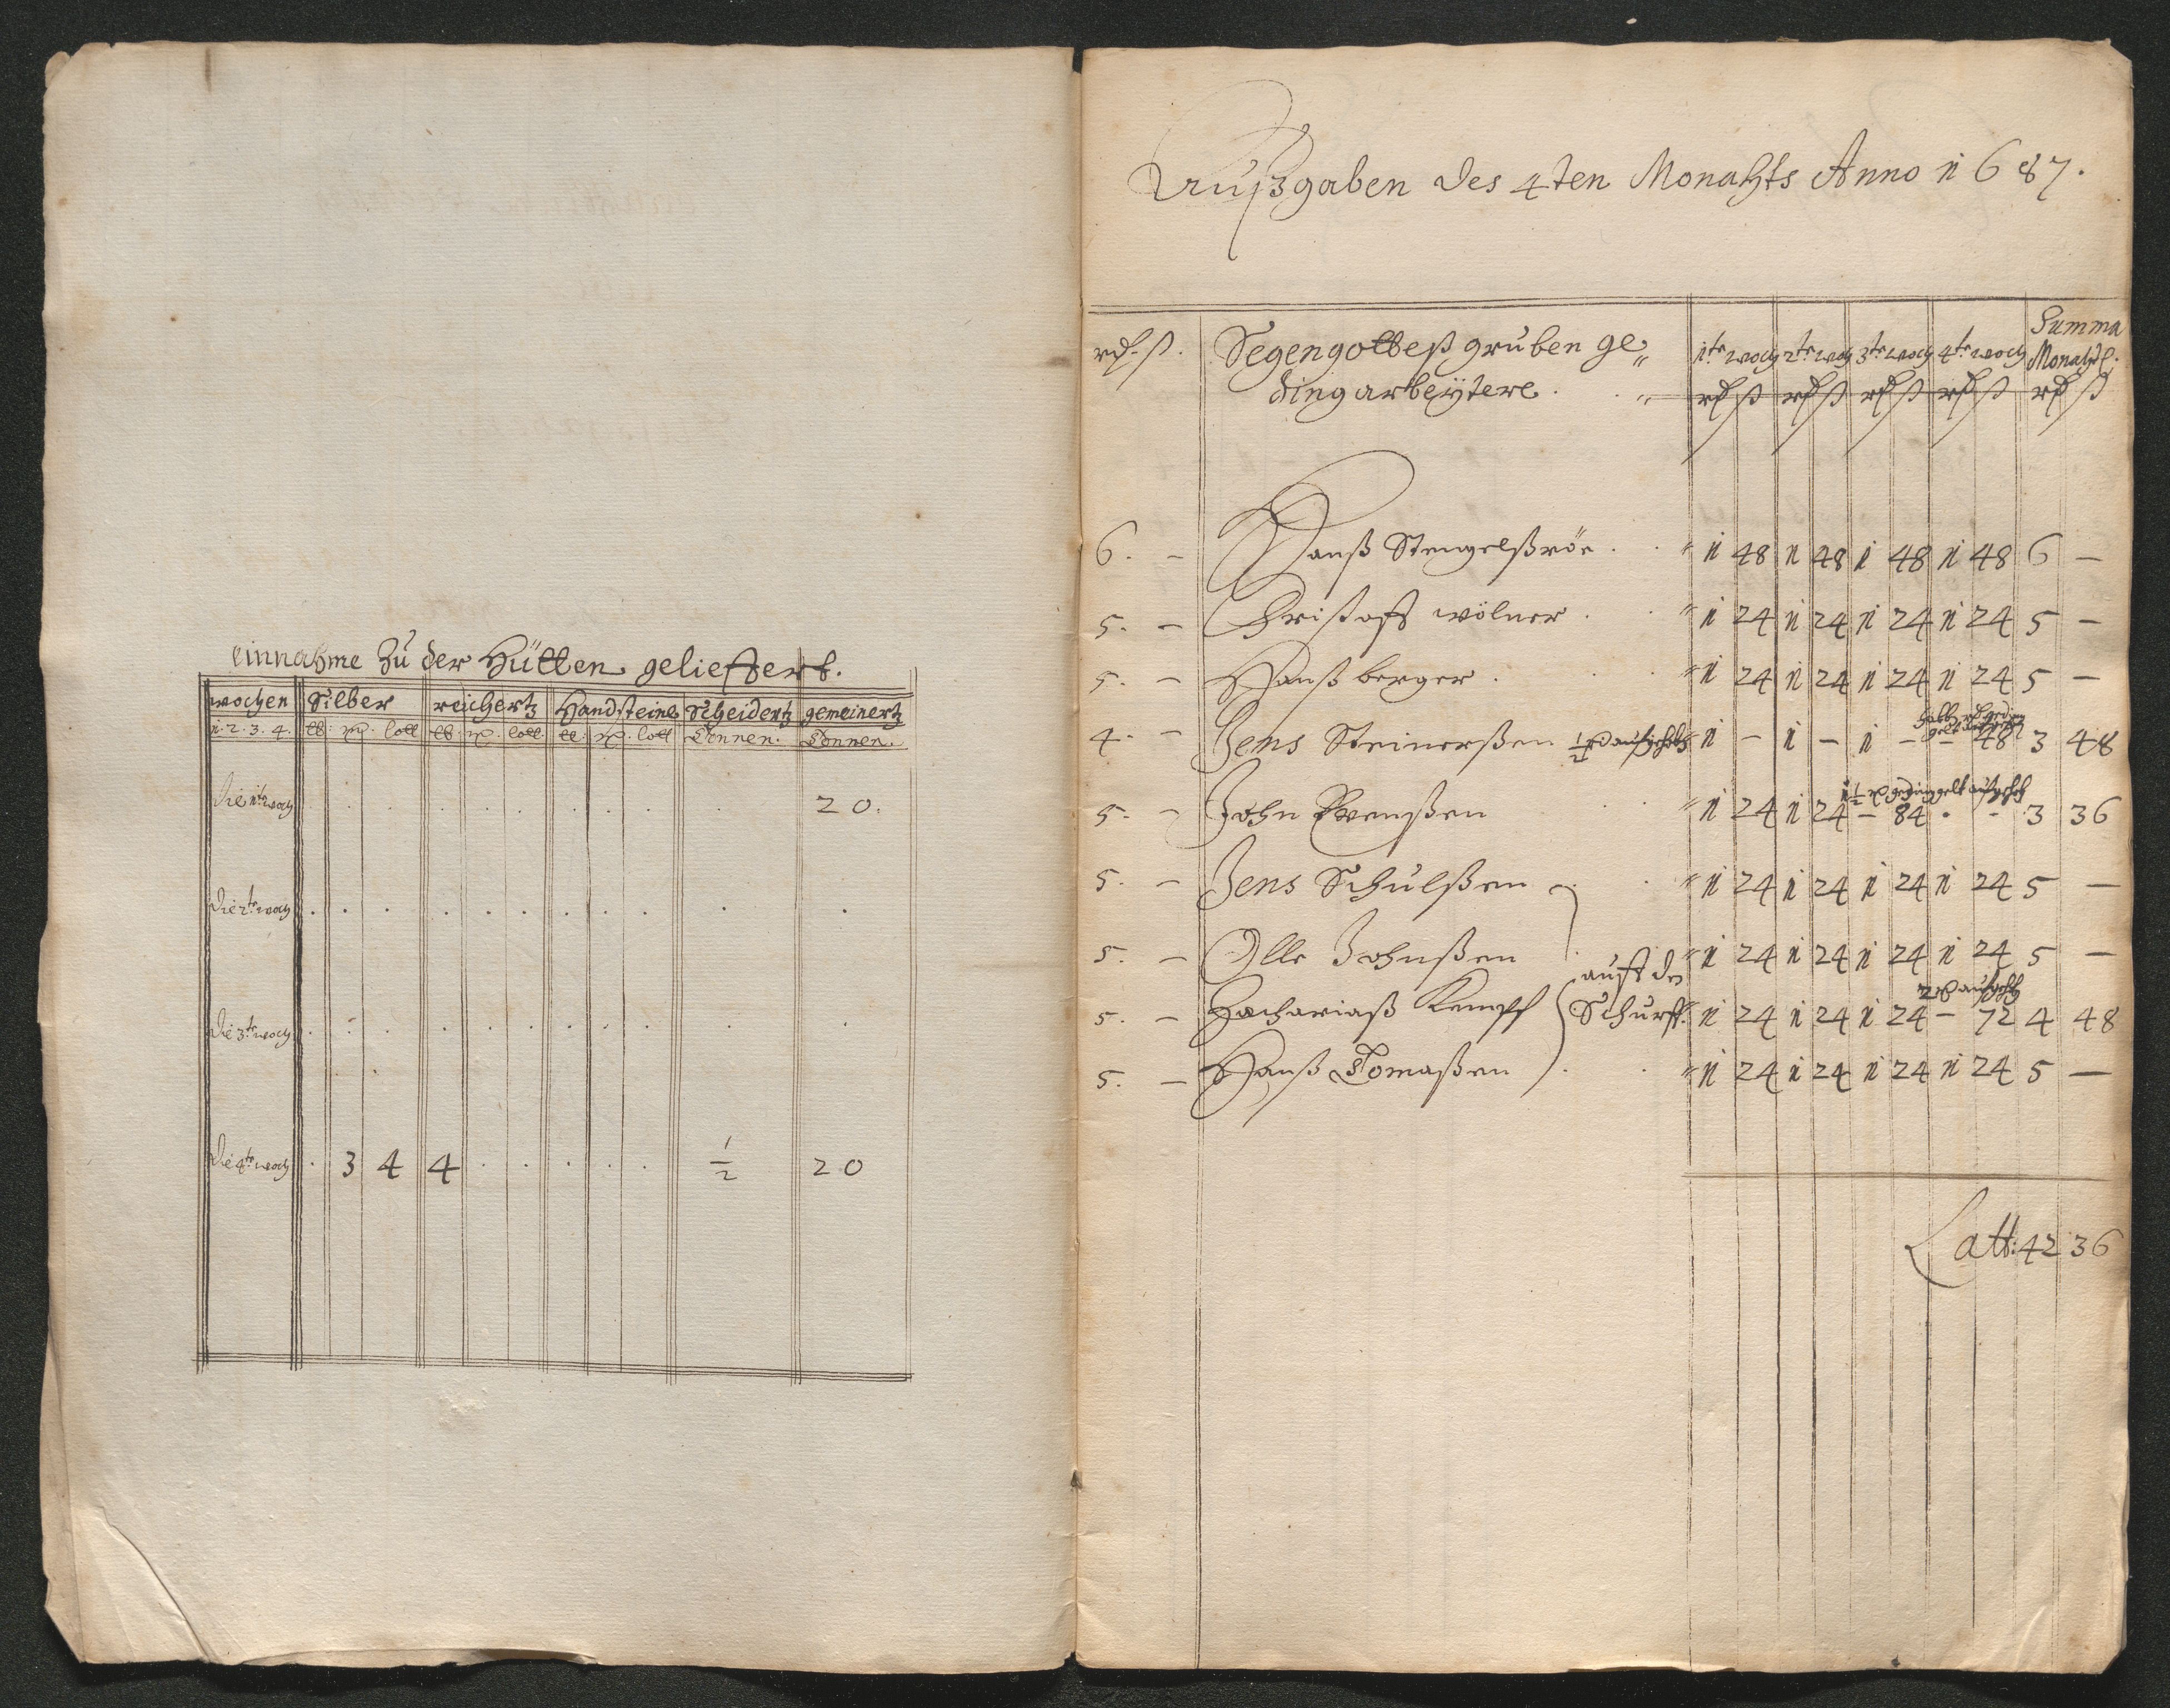 einnahme Zu der Hütten gelieffert.
wochen Silber reichertz Handsteine Scheidertz gemeinertz
1. 2. 3. 4. lb. lott lb. lott lb. lott Tonnen. Tonnen.
Die 1te woch . . . . . . . . . . 20.
Die 2te woch . . . . . . . . . . .
Die 3te woch . . . . . . . . . . .
Die 4te woch . 3 4 4 . . . . . 1/2 20
Außgaben des 4ten Monahts Anno 1687.
rd. ß. Segengottes gruben ge= 1te woch 2te woch 3te woch 4te woch Summa Monahtl.
dingarbeÿtere. rd ß rd ß rd ß rd ß rd ß
6. – Hanß Stengelßröe 1 48 1 48 1 48 1 48 6 –
5. – Christoff wölner 1 24 1 24 1 24 1 24 5 –
5. – Hanß berger 1 24 1 24 1 24 1 24 5 –
4. – Jens Steinerßen 1/2 rd 1 – 1 – 1 – – 48 3 48
1 1/2 rd gedinggelt
5. – John Svenßen 1 24 1 24 – 84 . – 3 36
5. – Jens Schulßen 1 24 1 24 1 24 1 24 5 –
5. – Olle Johnßen 1 24 1 24 1 24 1 24 5 –
auff den
5. – Zachariaß Kempff Schurff. 1 24 1 24 1 24 – 72 4 48
5. – Hanß Tomaßen 1 24 1 24 1 24 1 24 5 –
Latt: 42 36